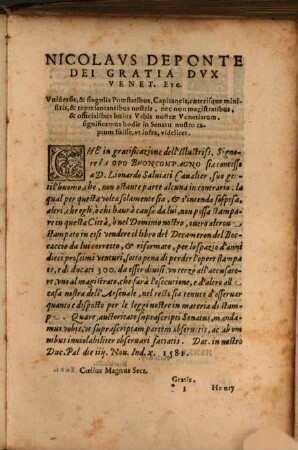 NICOLAVS DEPONTE
DEI GRATIA DVX
VENET. Etc.
Vniuersis, & singulis Potestatibus, Capitaneis, cæterisque mini-
stris, & repræsentantibus nostris, nec non magistratibus,
& officialibus huius Vrbis nostræ Venetiarum.
significamus hodie in Senatu nostro ca-
ptum fuisse, vt infra, videlicet.
CHE in gratificazione dell'Illustriss. Signo-
re IACOPO BVONCOMPAGNO sia concesso
a D. Lionardo Saluiati Caualier, suo gen-
til'huomo, che, non ostante parte alcuna in contrario, la
qual per questa volta solamente sia, & s'intenda sospesa,
altri, che egli, ò chi haurà causa da lui, non possa stampa-
re in questa Città, ò nel Dominio nostro, ouero altroue
stampato in essi vendere il libro del Decameron del Boc-
caccio da lui corretto, & riformato, per lo spazio d'anni
dieci prossimi venturi, sotto pena di perder l'opere stampa-
te, et di ducati 300. da esser diuisi, vn terzo all'accusato-
re, vno al magistrato, che farà l'esecuzione, et d'altro alla
casa nostra dell'Arsenale, nel resto sia tenuto d'osseruar
quanto è disposto per le leggi nostre in materia di stam-
pe. Quare, auctoritate suprascripti Senatus, mandamus
vobis, vt suprascriptam partem obseruetis, ac ab om-
nibus inuiolabiliter obseruari faciatis. Dat. in nostro
Duc. Pal. die iiij. Nou. Ind. x. 1581.
Cœlius Magnus Secr.
Gratis.